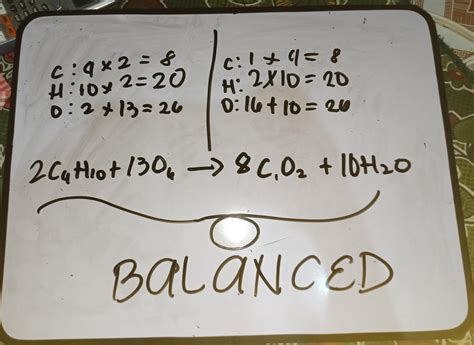 C: 4 × 2 = 8
H: 10 × 2 = 20
O: 2 × 13 = 26
C: 1 × 4 = 8
H: 2 × 10 = 20
O: 16 + 10 = 26
2C₄H₁₀ + 13O₄ → 8C₁O₂ + 10H₂O
BALANCED